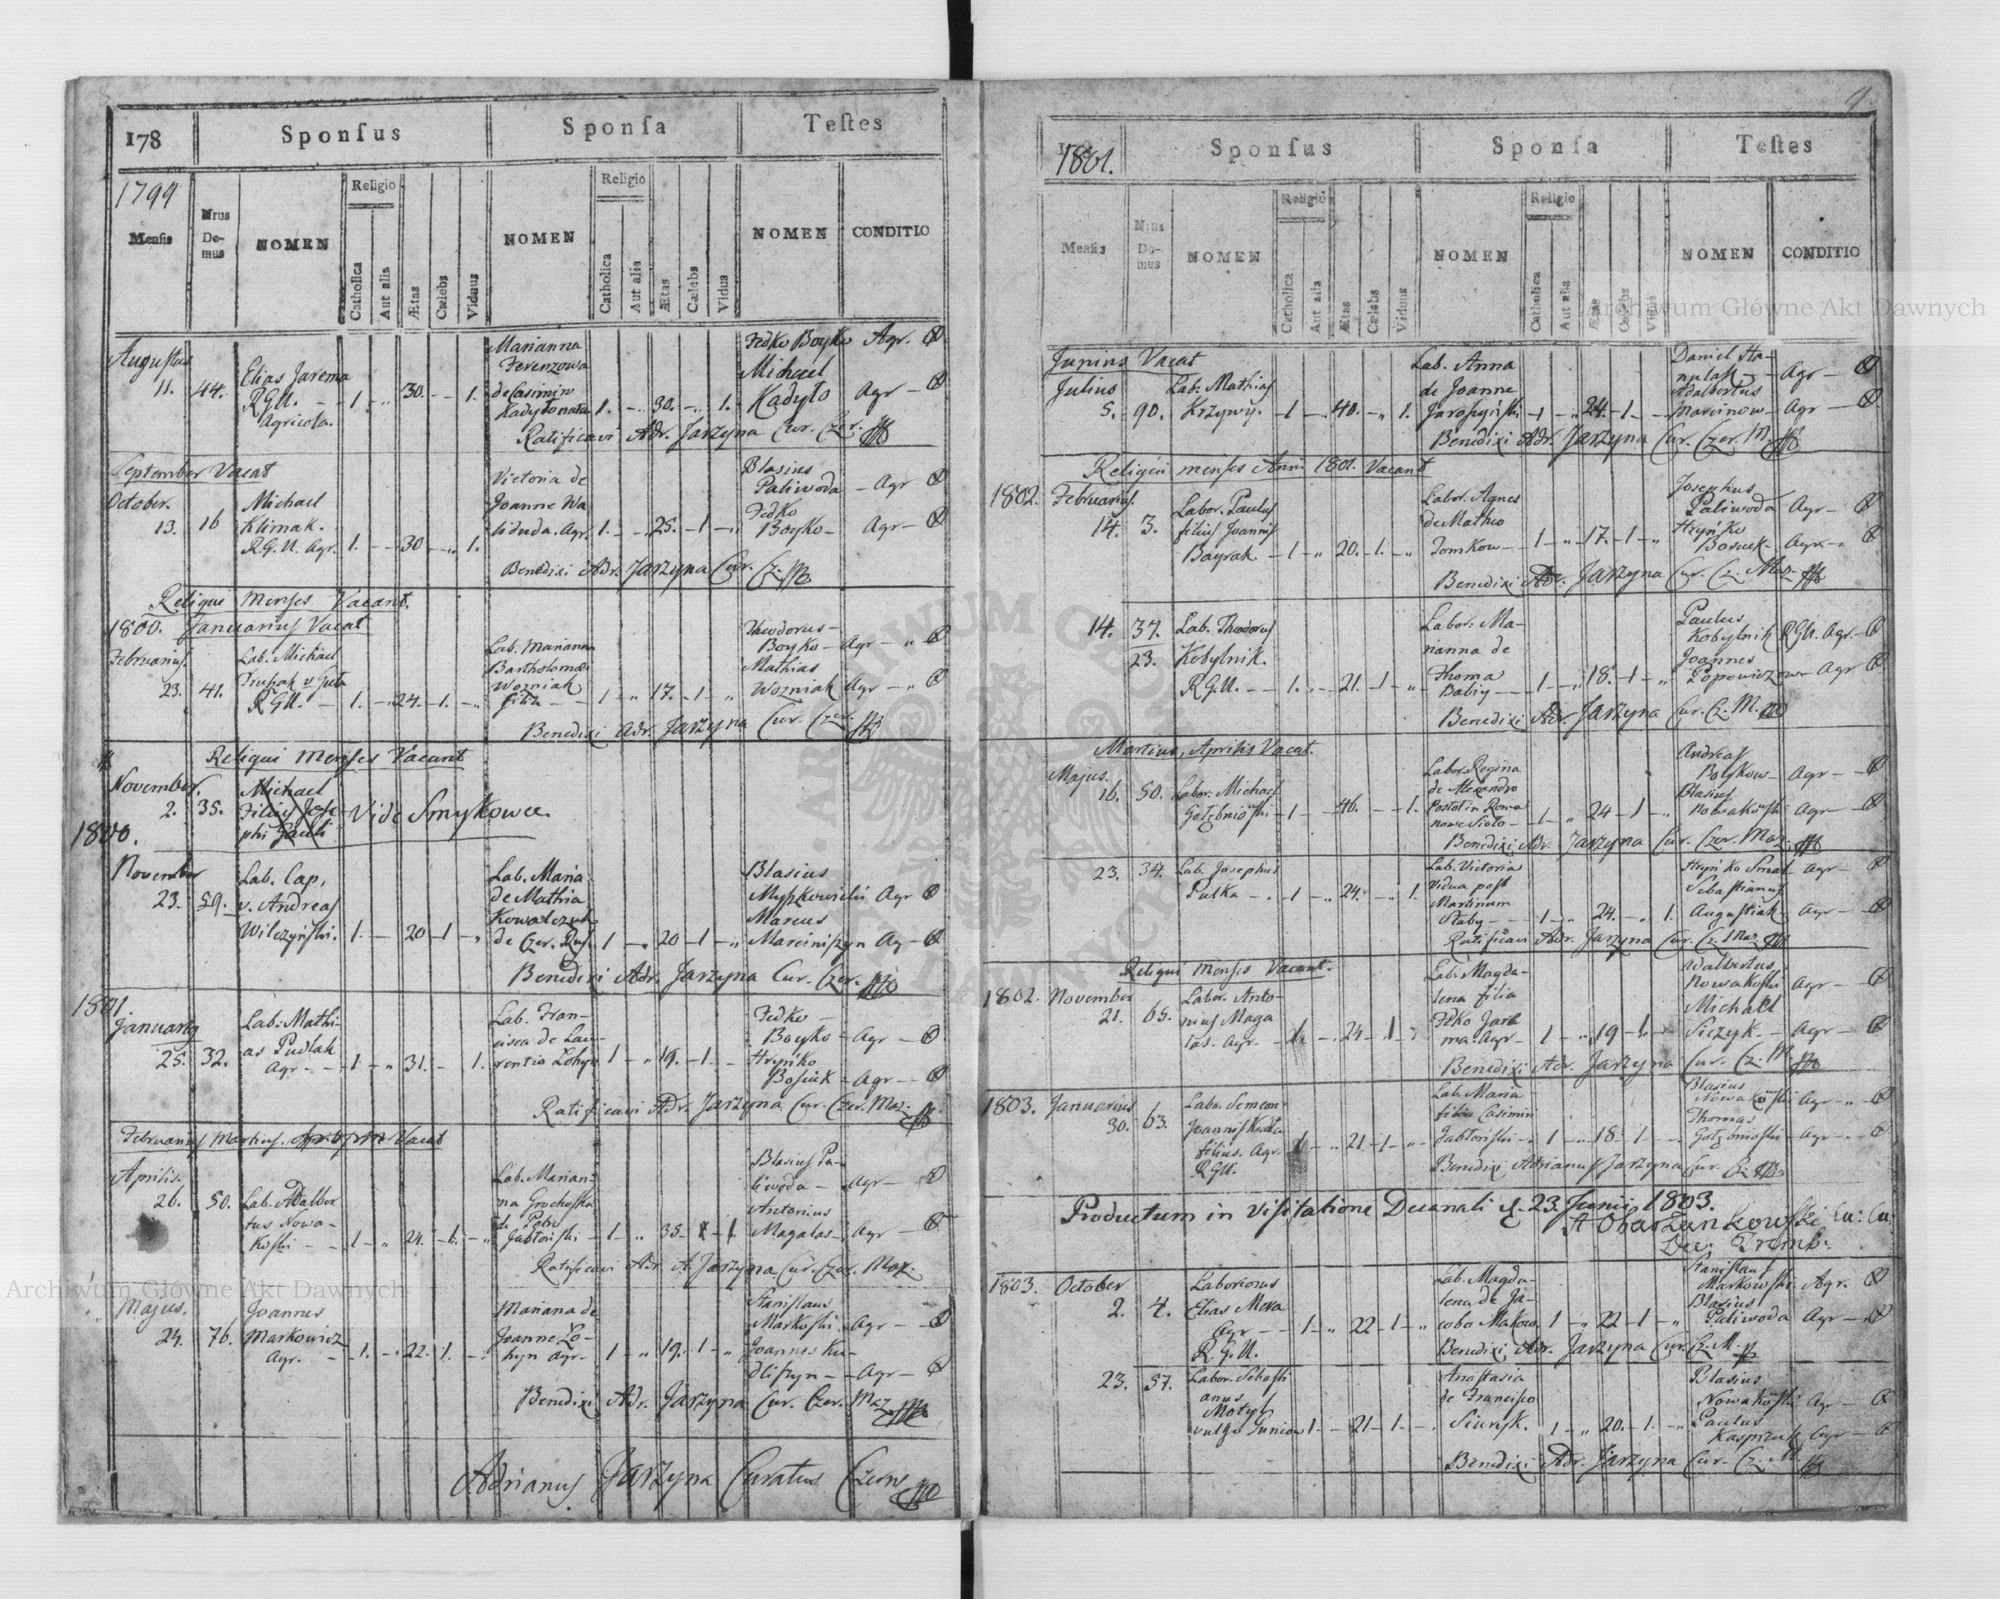 178
Sponſus
Sponſa
Teſtes
1799
Menſis
Nrus Domus
NOMEN
Religio
Catholica
Aut alia
Ætas
Cælebs
Viduus
NOMEN
Religio
Catholica
Aut alia
Ætas
Cælebs
Vidua
NOMEN
CONDITIO
Augustus
11. 44.
Elias Jarema
R.G.U. 1. 30. 1.
Agricola.
Marianna
de Casimiro
1. 30. 1.
Fedko Boyko Agr.
Michael
Kadyło Agr
Ratificavi Adr. Jarzyna Cur. Czer.
September Vacat
October.
13. 16
Michael
Klimak.
R.G.U. Agr. 1. 30 1.
Victoria de
Joanne Wa
liduda. Agr. 1. 25. 1
Blasius
Paliwoda Agr
Fedko
Boyko Agr
Benedixi Adr. Jarzyna Cur. Cz.
Reliqui Menses Vacant.
1800. Januarius Vacat
Februarius
23. 41.
Lab. Michael
R.G.U. 1. 24. 1.
Lab. Marianna
Bartholomæi
Wozniak
filia 1 17. 1
Theodorus
Boyko Agr
Mathias
Wozniak Agr
Benedixi Adr. Jarzyna Cur. Czer.
Reliqui Menses Vacant
November.
2. 35.
Michael
Filius Jose
phi
Vide Smykowce
1800.
November
23. 59.
Lab. Cap.
v. Andreas
Wilczyński. 1. 20 1
Lab. Maria
de Mathia
Kowalczyk
de Czer. Rus. 1 20 1
Blasius
Agr
Marcus
Marciniszyn Ag
Benedixi Adr. Jarzyna Cur. Czer.
1801
Januarij
25. 32.
Lab. Mathi-
as Pudlak
Agr. 1 31. 1.
Lab. Fran-
cisca de Lau-
rentio 1 19. 1.
Fedko
Boyko Agr
Hryńko
Agr
Ratificavi Adr. Jarzyna Cur. Czer. Maz.
Februarius Martius Vacat
Aprilis.
26. 50.
Lab. Adalber
tus Nowa-
koski 1 24. 1.
Lab. Marian-
na Grochoska
de Petro
Jabłoński 1 35
Blasius Pa-
liwoda Agr
Antonius
Magalas Agr
Ratificavi Adr. Jarzyna Cur. Czer. Maz.
Majus.
24. 76.
Joannes
Markowicz
Agr. 1. 22. 1.
Mariana de
Joanne Lo-
hyn Agr. 1 19. 1
Stanislaus
Markoski Agr
Joannes Ku-
dliszyn Agr
Benedixi Adr. Jarzyna Cur. Czer. Maz.
Adrianus Jarzyna Curatus Czern.
1801.
Sponſus
Sponſa
Teſtes
Menſis
Nrus Domus
NOMEN
Religio
Catholica
Aut alia
Ætas
Cælebs
Viduus
NOMEN
Religio
Catholica
Aut alia
Ætas
Cælebs
Vidua
NOMEN
CONDITIO
Junius Vacat
Julius
5. 90.
Lab. Mathias
Krzywy. 1 40. 1.
Lab. Anna
de Joanne
1 24. 1
Daniel Ha-
Agr
Adalbertus
Marcinow Agr
Benedixi Adr. Jarzyna Cur. Czer. M.
Reliqui menses Anni 1801. Vacant
1802. Februarius.
14. 3.
Labor. Paulus
filius Joannis
Bayrak 1 20. 1.
Labor. Agnes
de Matheo
Tomkow 1 17. 1
Josephus
Paliwoda Agr
Hryńko
Agr
Benedixi Adr. Jarzyna Cur. Cz. Maz.
14. 37.
23.
Lab. Theodorus
Kobylnik.
R.G.U. 1. 21. 1
Labor. Ma-
rianna de
Thoma
Babiy 1 18. 1
Paulus
Kobylnik R.G.U. Agr.
Joannes
Popowiczow Agr
Benedixi Adr. Jarzyna Cur. Cz. M.
Martius, Aprilis Vacat.
Majus.
16. 50.
Labor. Michael
Gołębioski 1 46. 1.
Labor. Regina
de Alexandro
1 24 1
Andreas
Agr
Blasius
Nowakoski Agr
Benedixi Adr. Jarzyna Cur. Czer. Maz.
23. 34.
Lab. Josephus
Pulka 1 24. 1.
Lab. Victoria
Vidua post
Martinum
Słaby 1 24. 1.
Hryńko Agr
Sebastianus
Augustiak Agr
Ratificavi Adr. Jarzyna Cur. Cz. Maz.
Reliqui menses Vacant.
1802. November
21. 65.
Labor. Anto-
nius Maga
las. Agr. 1. 24 1
Lab. Magda-
lena filia
ma. Agr. 1 19 1
Adalbertus
Nowakoski Agr
Michael
Siczyk Agr
Benedixi Adr. Jarzyna Cur. Cz. M.
1803. Januarius
30. 63.
Labo. Semeon
Joannis
filius. Agr. 1 21 1
R.G.U.
Lab. Maria
filia Casimiri
Jabłoński 1 18. 1
Blasius
Nowakoski Agr
Thomas
Gołębioski Agr
Benedixi Adrianus Jarzyna Cur. Cz.
Productum in Visitatione Decanali d. 23. Junii 1803.
A Obarzankowski
Dec. Tremb.
1803. October
2. 4.
Laboriosus
Elias
Agr 1 22 1
R.G.U.
Lab. Magda-
lena de Ja-
cobo 1 22 1
Stanislaus
Markowski Agr.
Blasius
Paliwoda Agr
Benedixi Adr. Jarzyna Cur. Cz. M.
23. 57.
Labor. Sebasti
anus
Motyl
vulgo 1 21 1.
Anastasia
de Francisco
1 20. 1.
Blasius
Nowakoski Agr
Paulus
Agr
Benedixi Adr. Jarzyna Cur. Cz. M.
Archiwum Główne Akt Dawnych
Archiwum Główne Akt Dawnych
ARCHIWUM GŁÓWNE AKT DAWNYCH